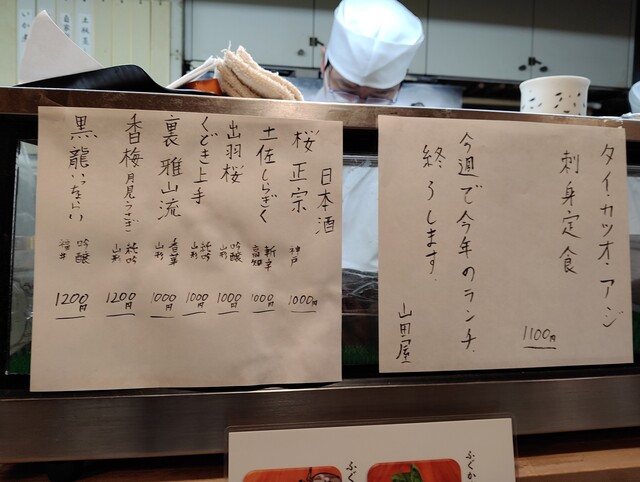 タイ・カツオ・アジ
刺身定食
1100円
今週で今年のランチ、
終ろします。
山田屋
日本酒
桜正宗 神戸 1000円
土佐しらぎく 新辛 高知 1000円
出羽桜 吟醸 山形 1000円
くどき上手 純吟 山形 1000円
裏雅山流 香華 山形 1000円
香梅月見うさぎ 純吟 山形 1200円
黒龍いっちょらい 吟醸 福井 1200円
ふぐか
ふぐ